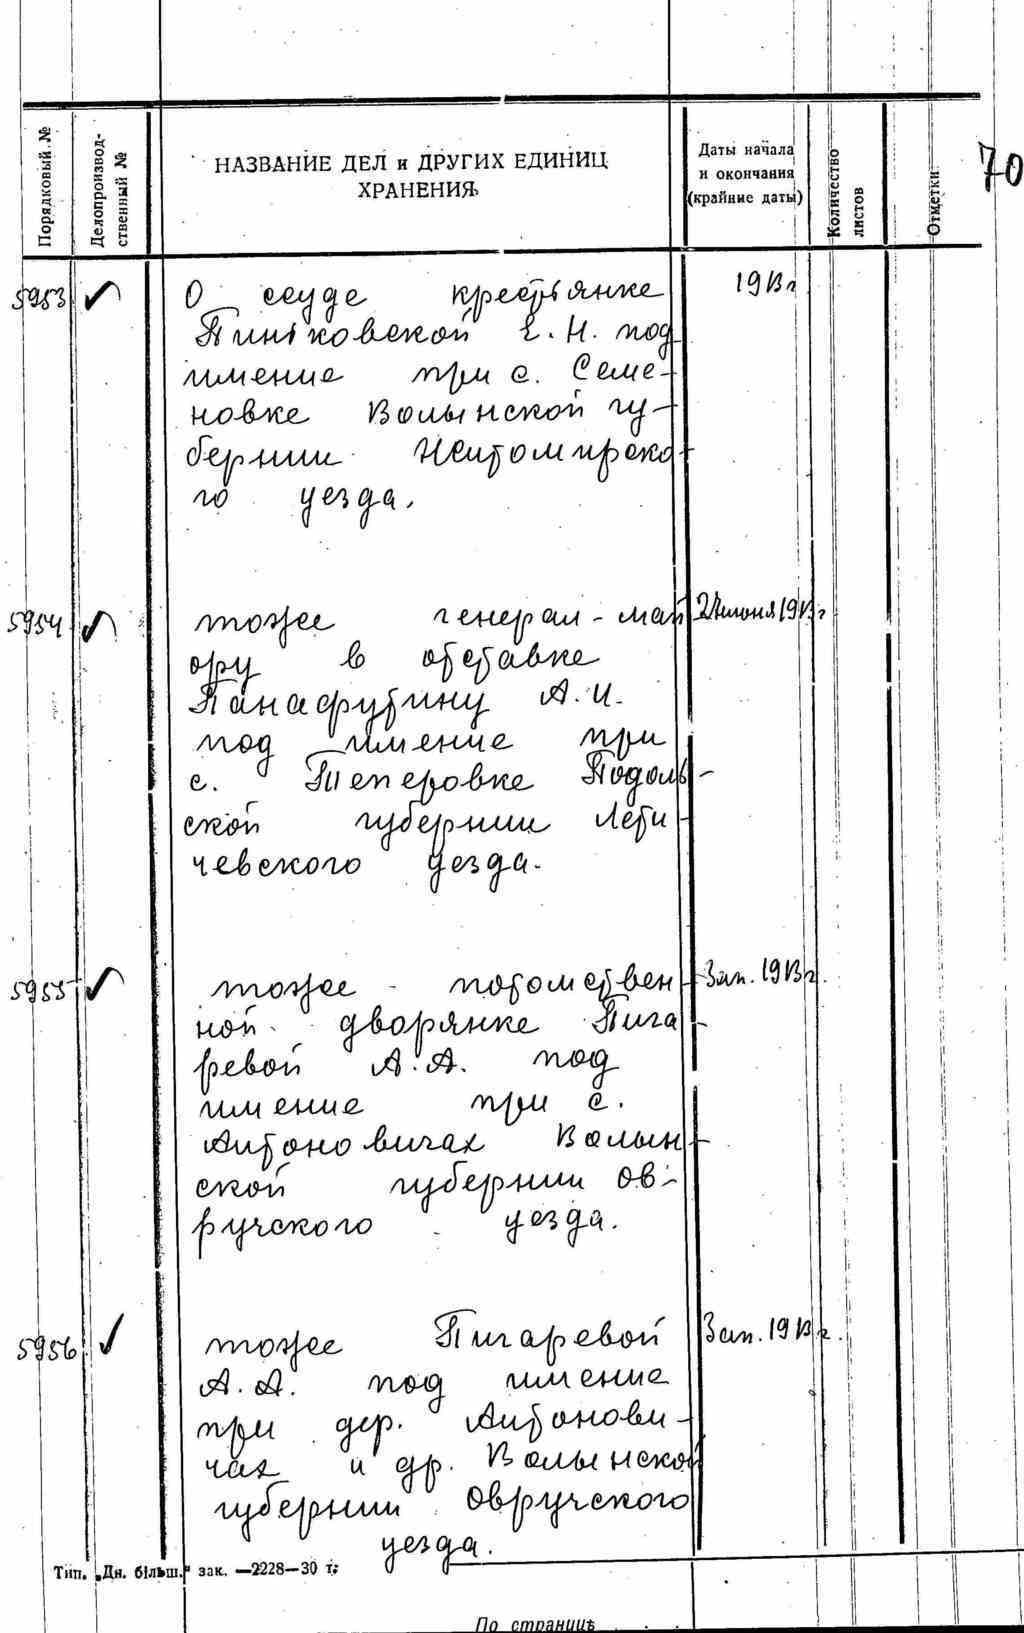 70
Порядковый №
Делопроизвод-
ственный №
НАЗВАНИЕ ДЕЛ и ДРУГИХ ЕДИНИЦ
ХРАНЕНИЯ
Даты начала
и окончания
(крайние даты)
Количество
листов
Отметки
5953 ✓ О ссуде крестьянке 1913 г
Пиньковской Е. Н. под
имение при с. Семе-
новке Волынской гу-
бернии Житомирско-
го уезда.
5954 ✓ тоже генерал-май июня 1913 г
ору в отставке
Панафутину А. И.
под имение при
с. Теперовке Подоль-
ской губернии Лети-
чевского уезда.
5955 ✓ тоже потомствен- Зап. 1913 г.
ной дворянке Пига-
ревой А. А. под
имение при с.
Антоновичах Волын-
ской губернии Ов-
ручского уезда.
5956 ✓ тоже Пигаревой Зап. 1913 г.
А. А. под имение
при дер. Антонови-
чах и др. Волынской
губернии Овручского
уезда.
Тип. „Дн. більш.“ зак. —2228—30 т.
По странице